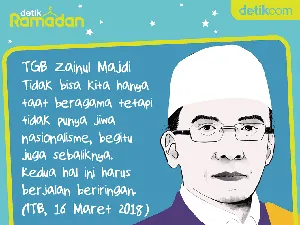 detik
Ramadan
detikcom
TGB Zainul Majdi
Tidak bisa kita hanya
taat beragama tetapi
tidak punya jiwa
nasionalisme, begitu
juga sebaliknya.
Kedua hal ini harus
berjalan beriringan.
(ITB, 16 Maret 2018)